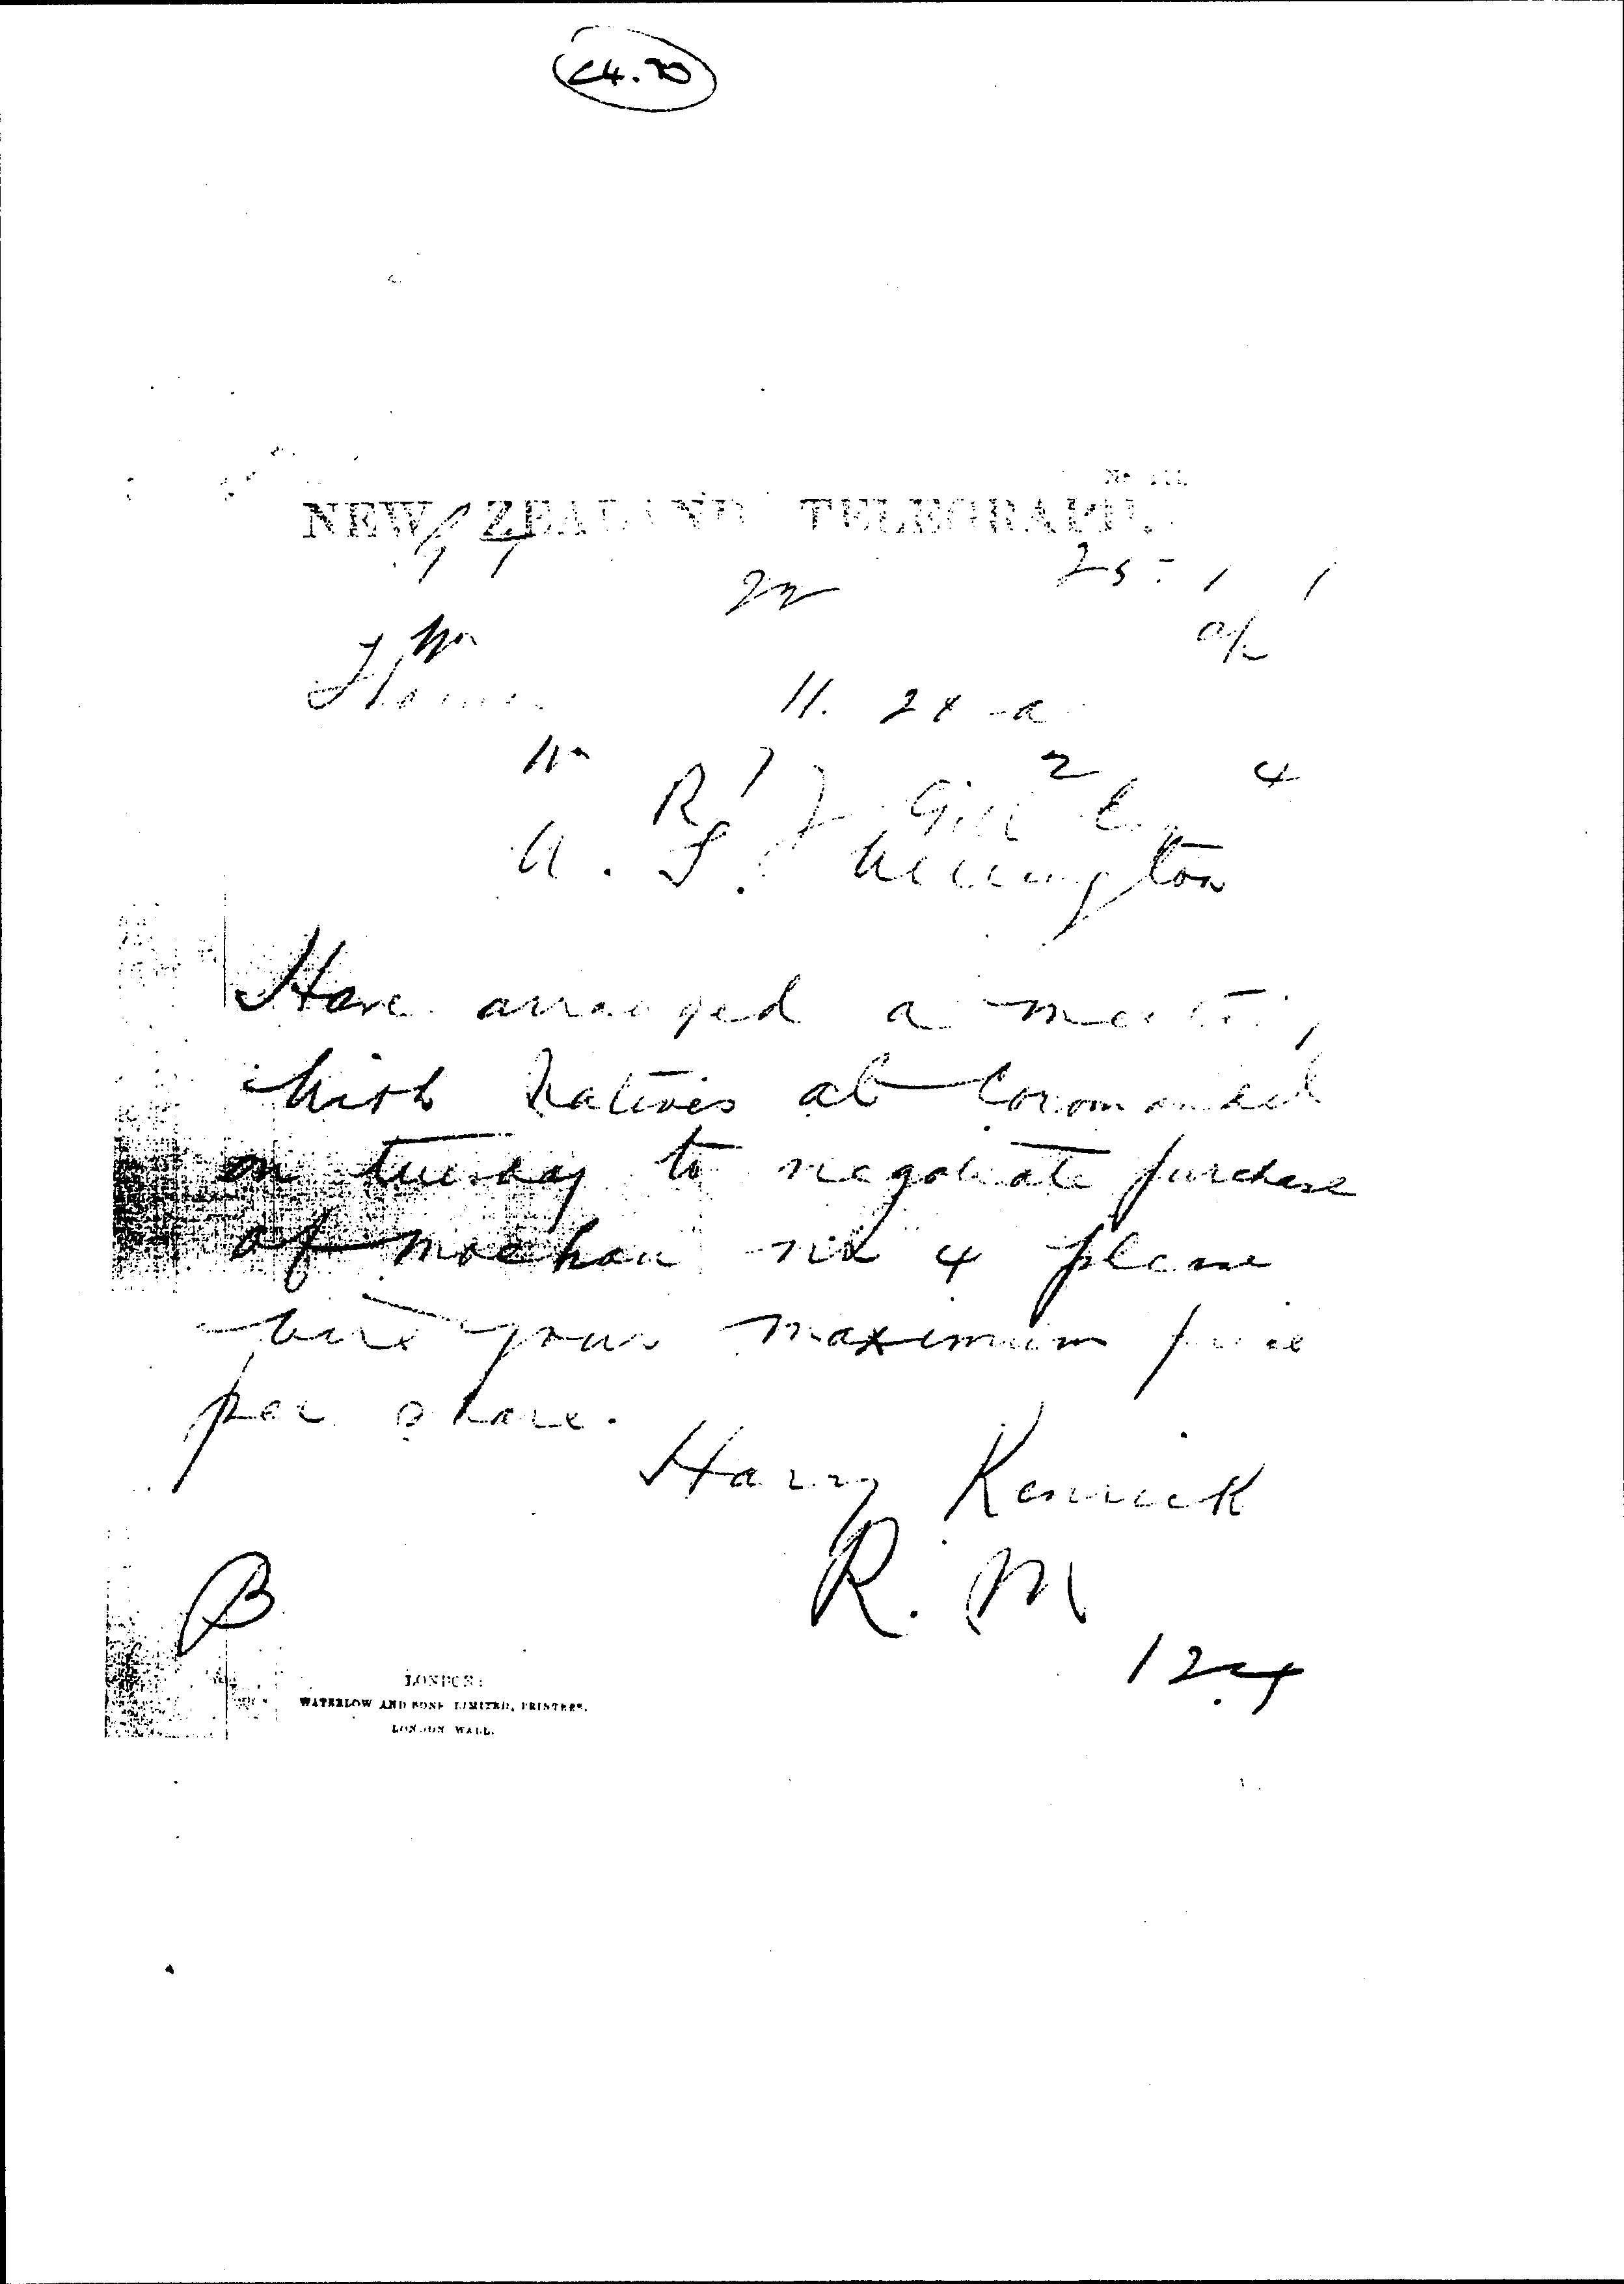 C4.20
NEW ZEALAND TELEGRAPH.
22
11. 24 a
R J Gill
Wellington
Have arranged a meeting
with Natives at Coromandel
on tuesday to negotiate purchase
of moehau no 4 please
wire your maximum price
per share.
Harry Kenrick
R. M
B
124
LONDON:
WATERLOW AND SONS LIMITED, PRINTERS,
LONDON WALL.